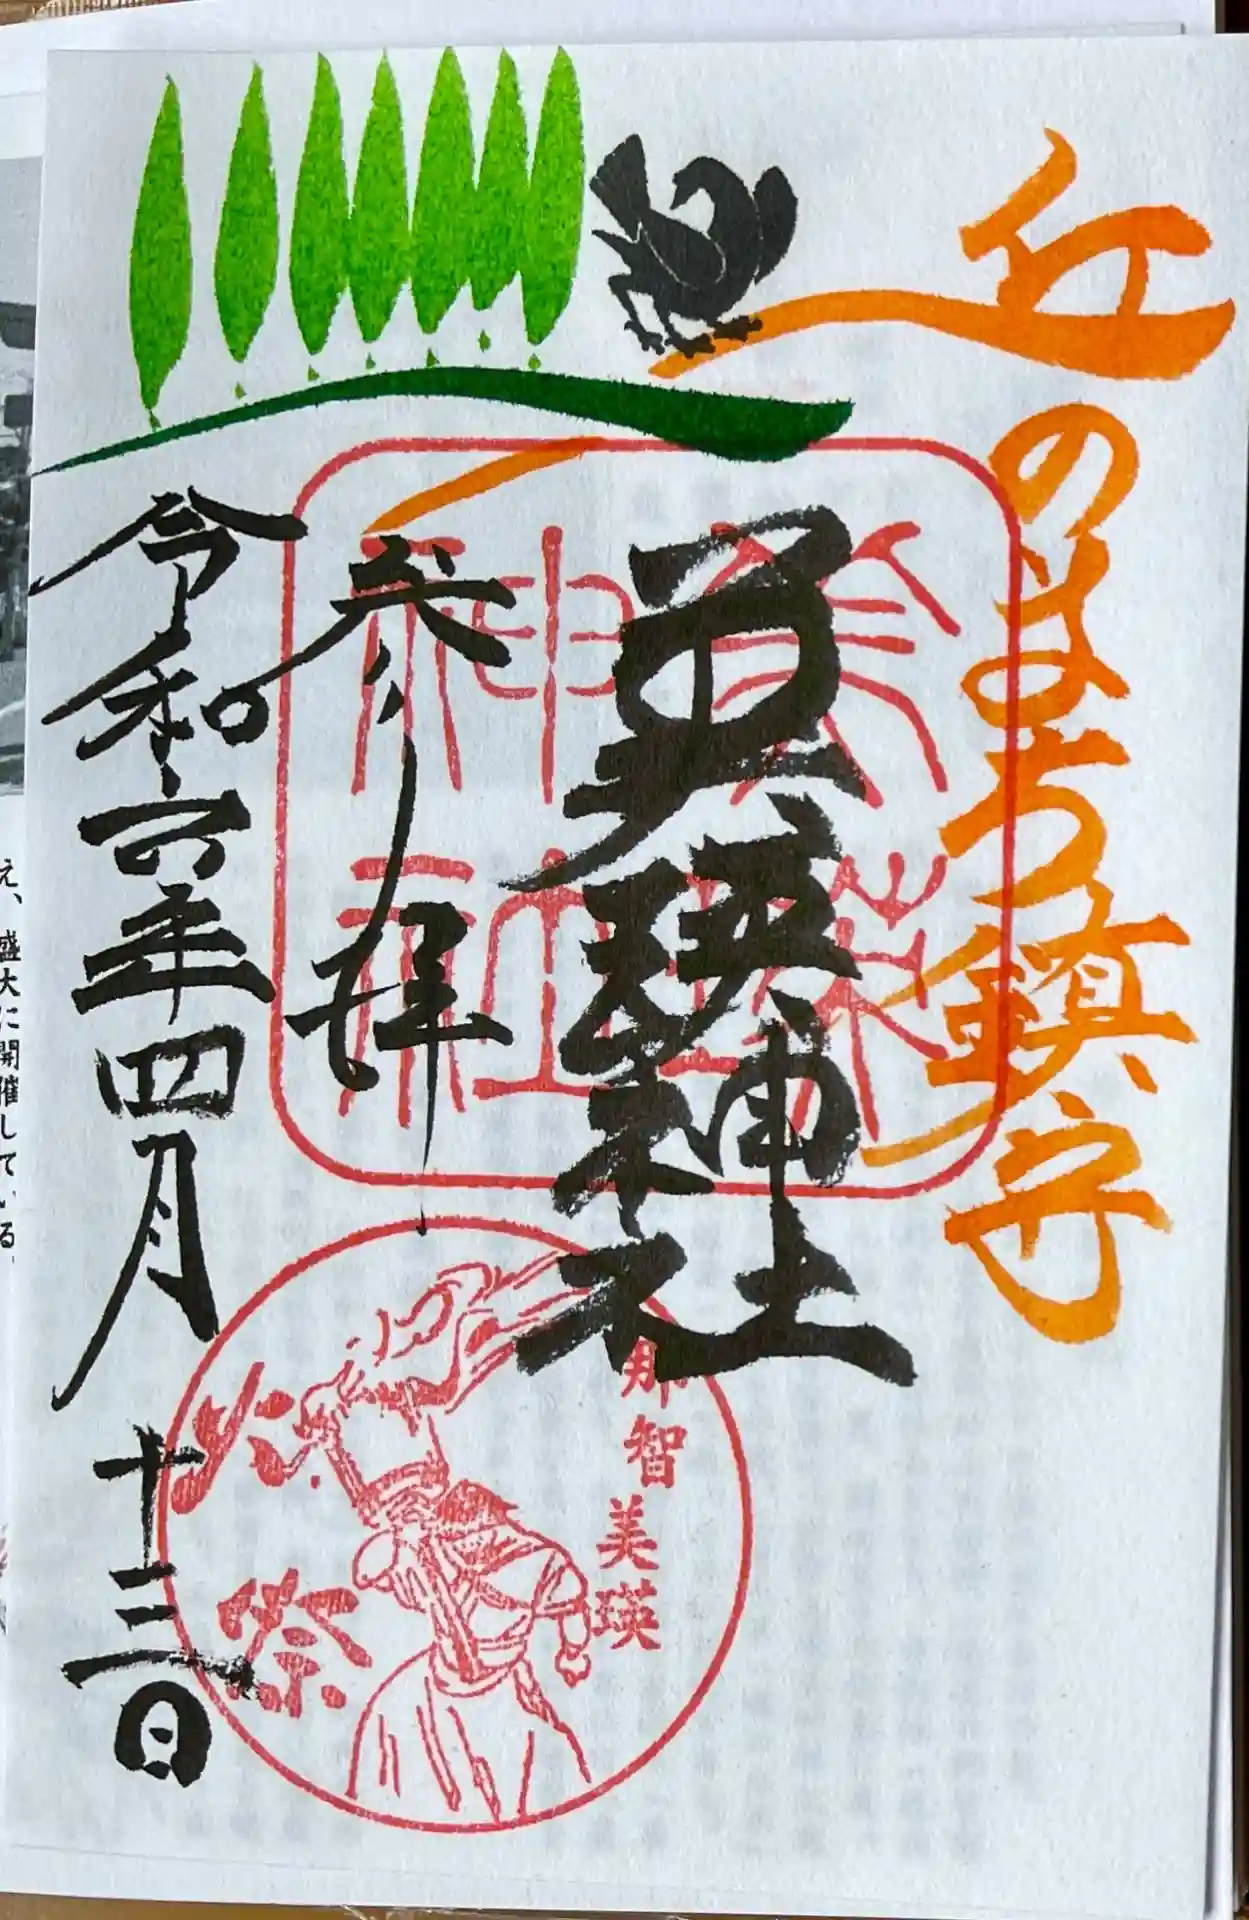 丘のまち鎮守
美瑛神社
参拝
令和六年四月十三日
美瑛
神社
那智美瑛
火祭
え、盛大に開催している